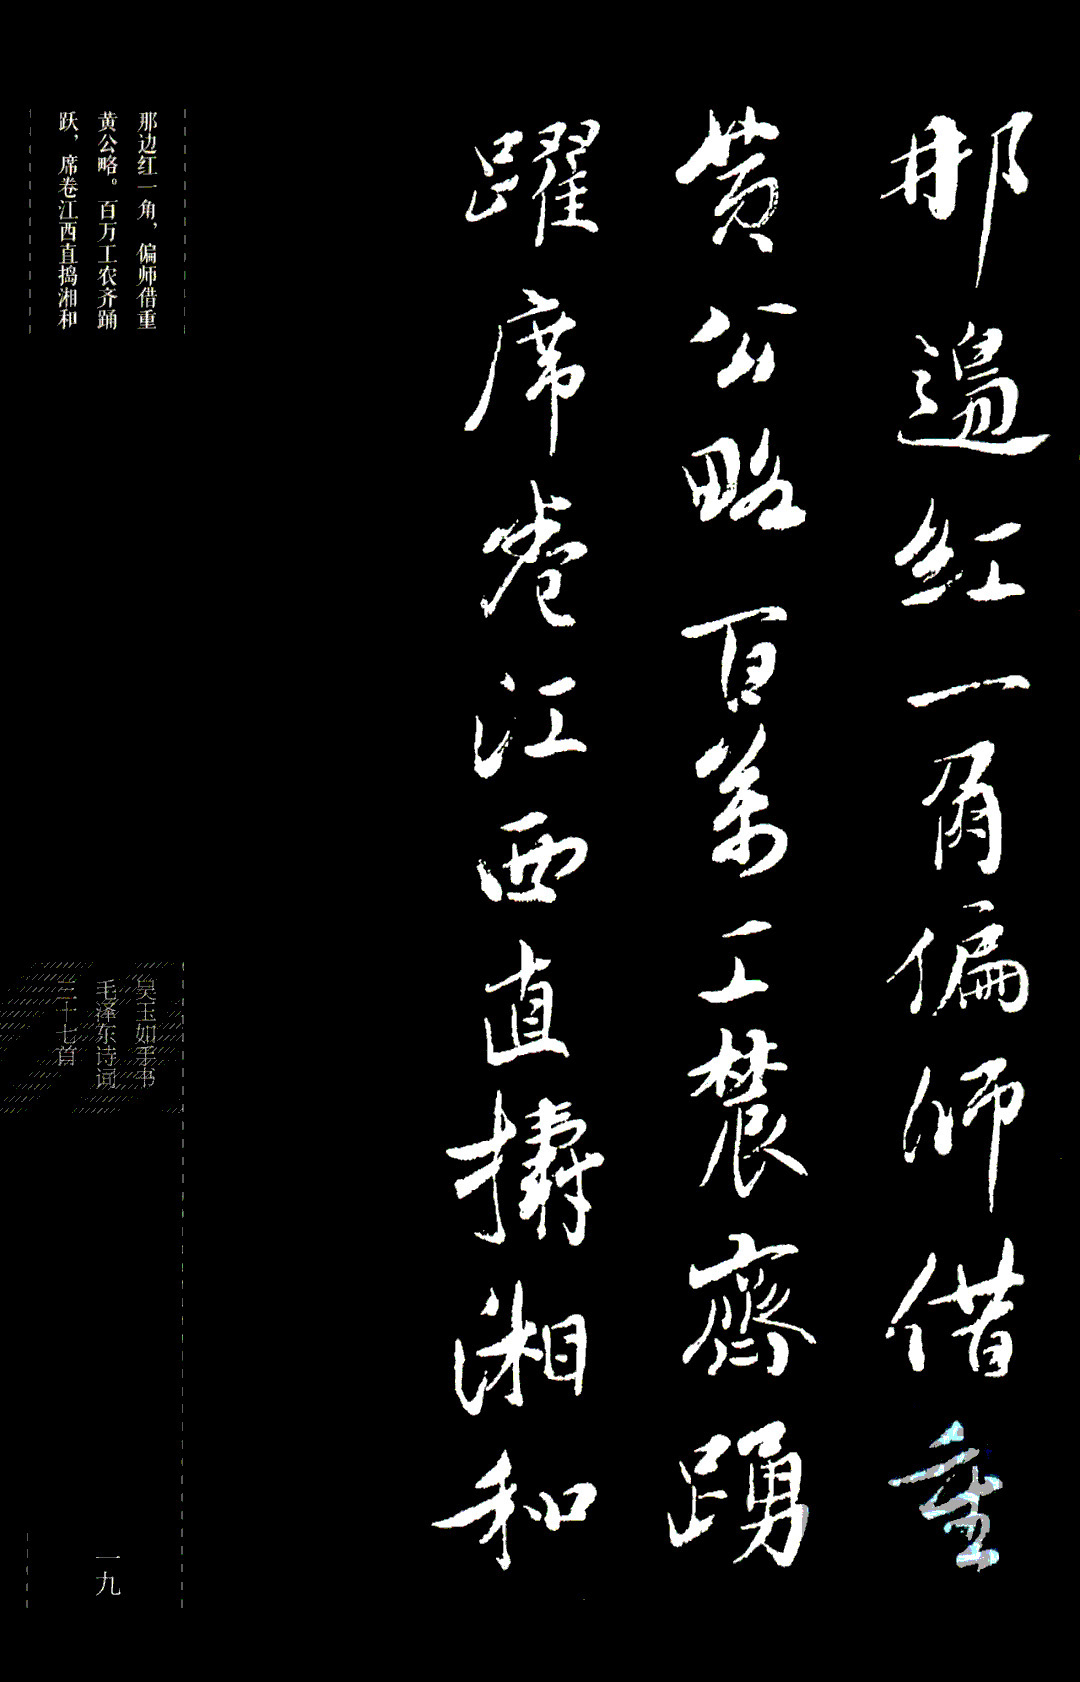 那邊紅一角偏師借重
黄公略百萬工農齊踴
躍席卷江西直擣湘和
那边红一角，偏师借重
黄公略。百万工农齐踊
跃，席卷江西直捣湘和
吴玉如手书
毛泽东诗词
三十七首
一九